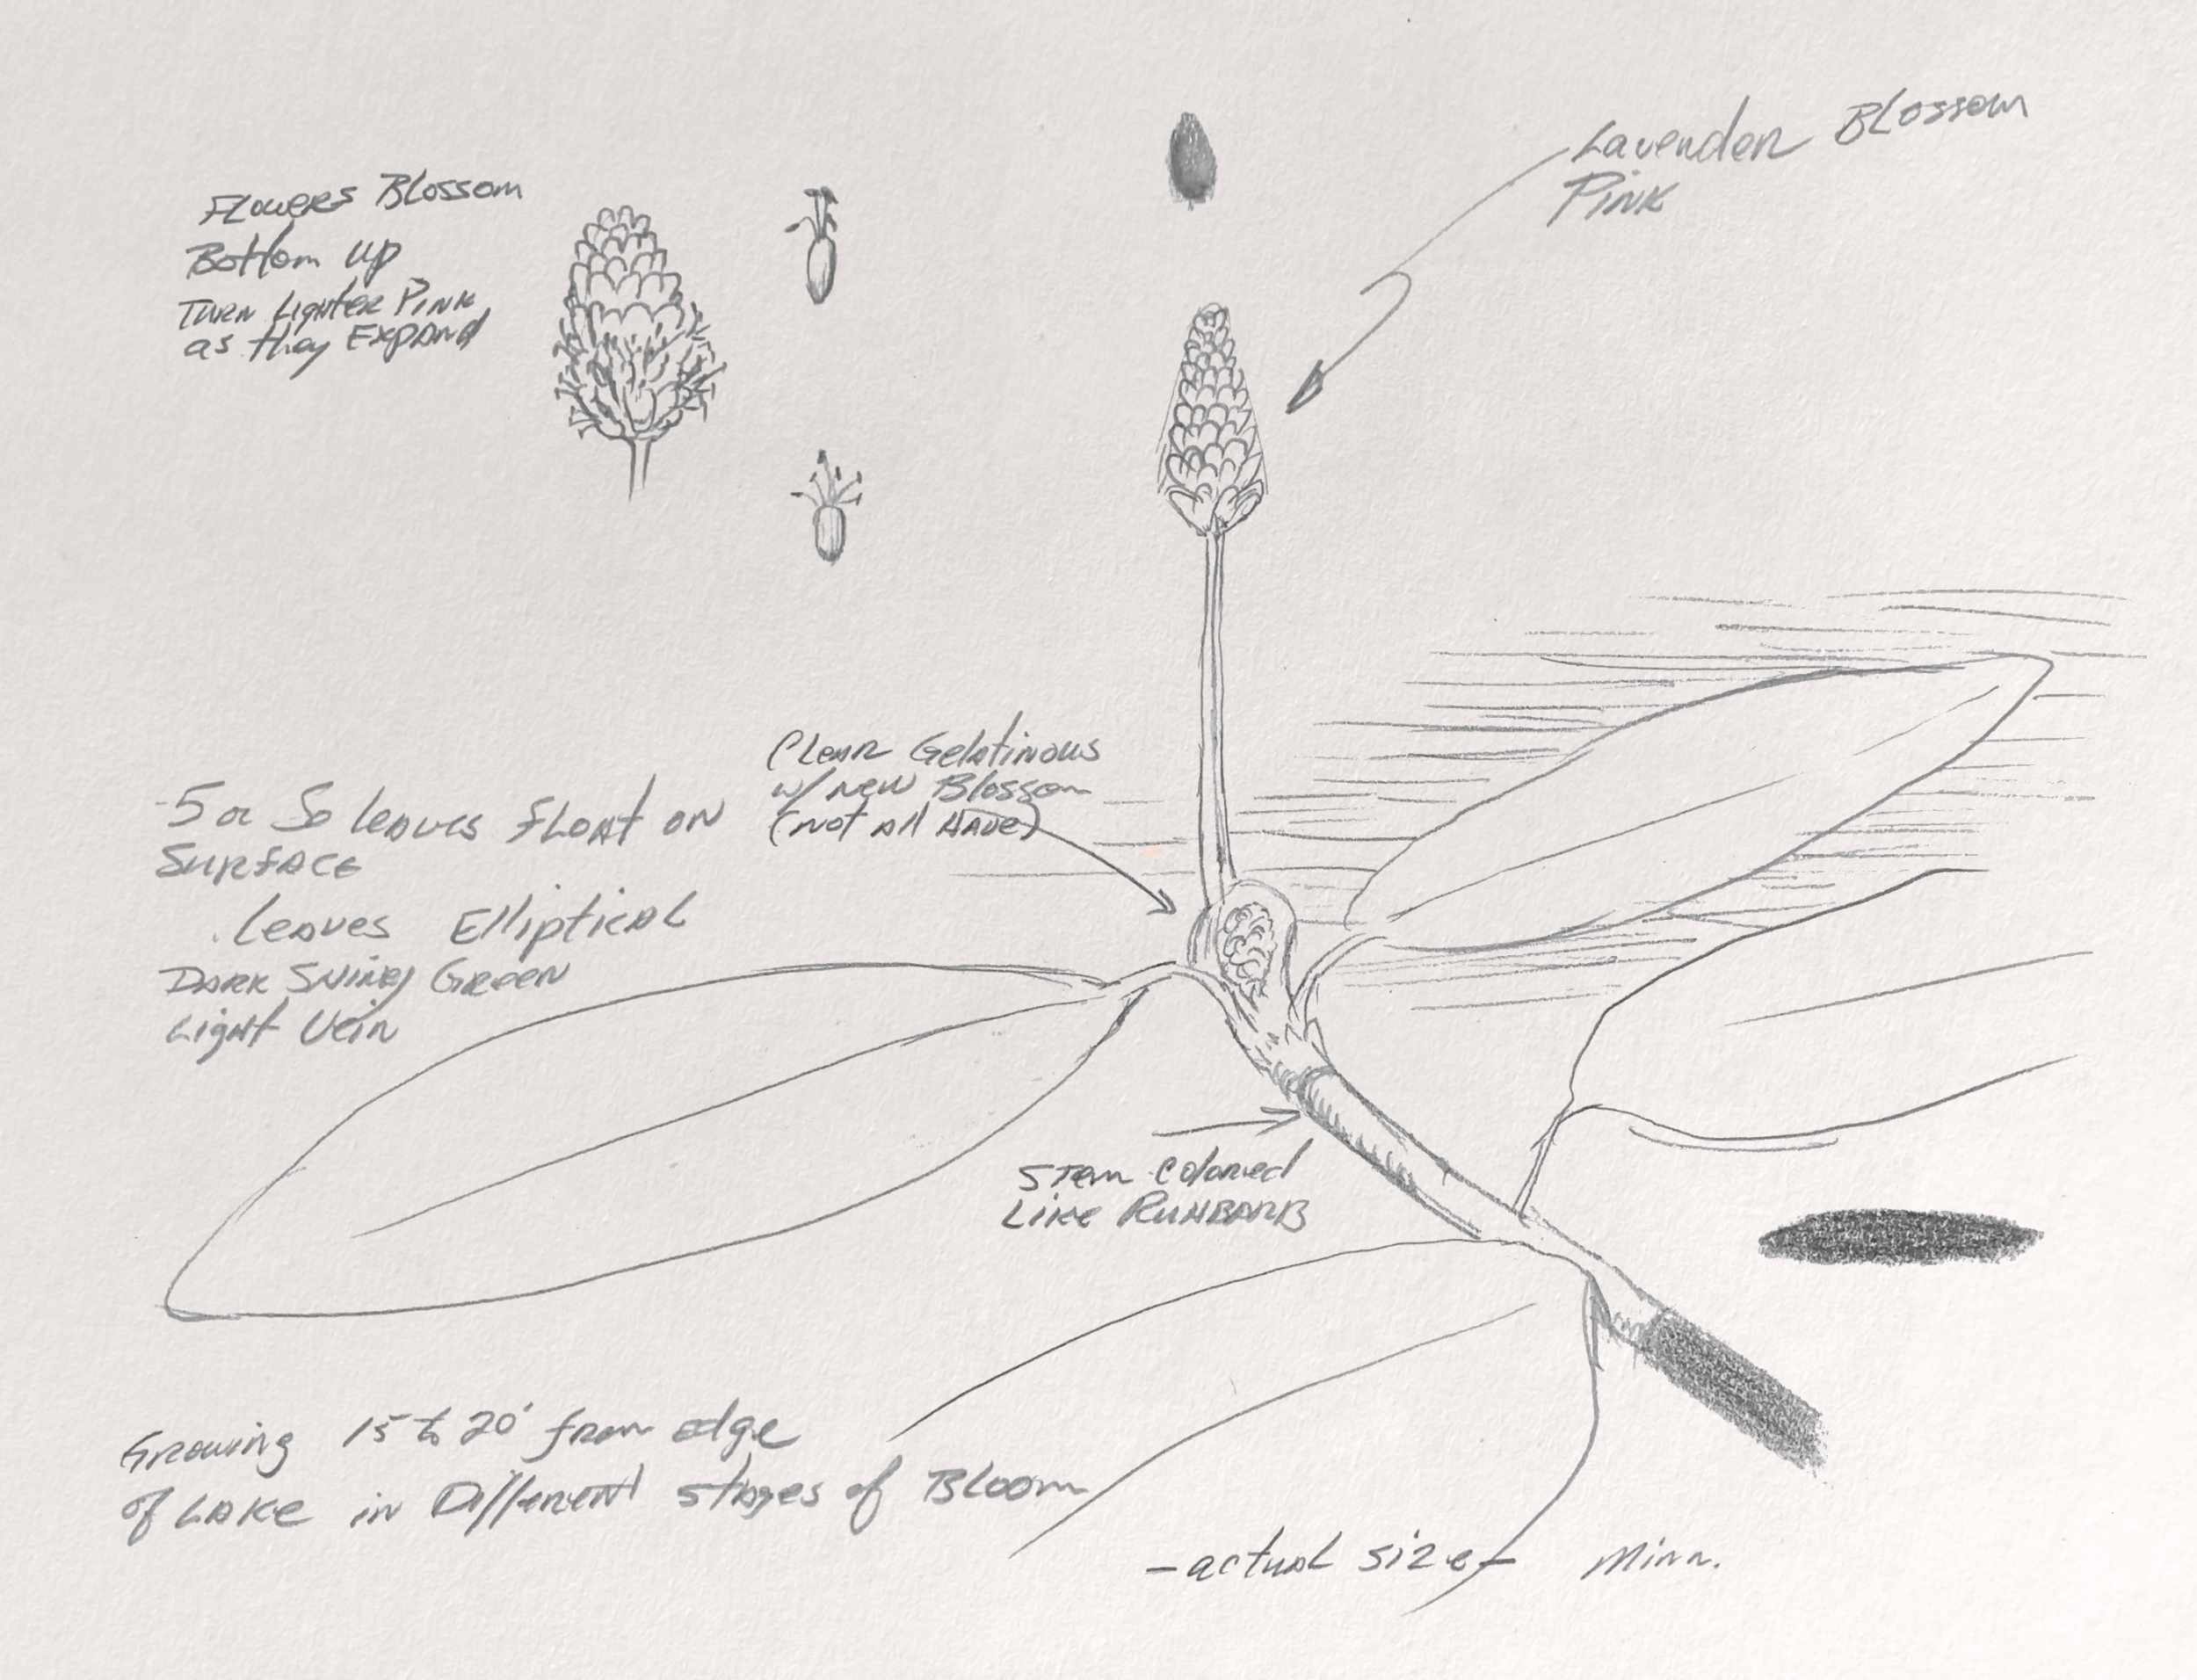 Lavender Blossom
Pink
Flowers Blossom
Bottom up
Turn Lighter Pink
as they Expand
Clear Gelatinous
w/ new Blossom
(not all Have)
-5 or So leaves float on
Surface
. Leaves Elliptical
Dark Shiney Green
Light Vein
Stem Colored
Like Ruhbarb
Growing 15 to 20' from edge
of Lake in Different stages of Bloom
- actual size - Minn.